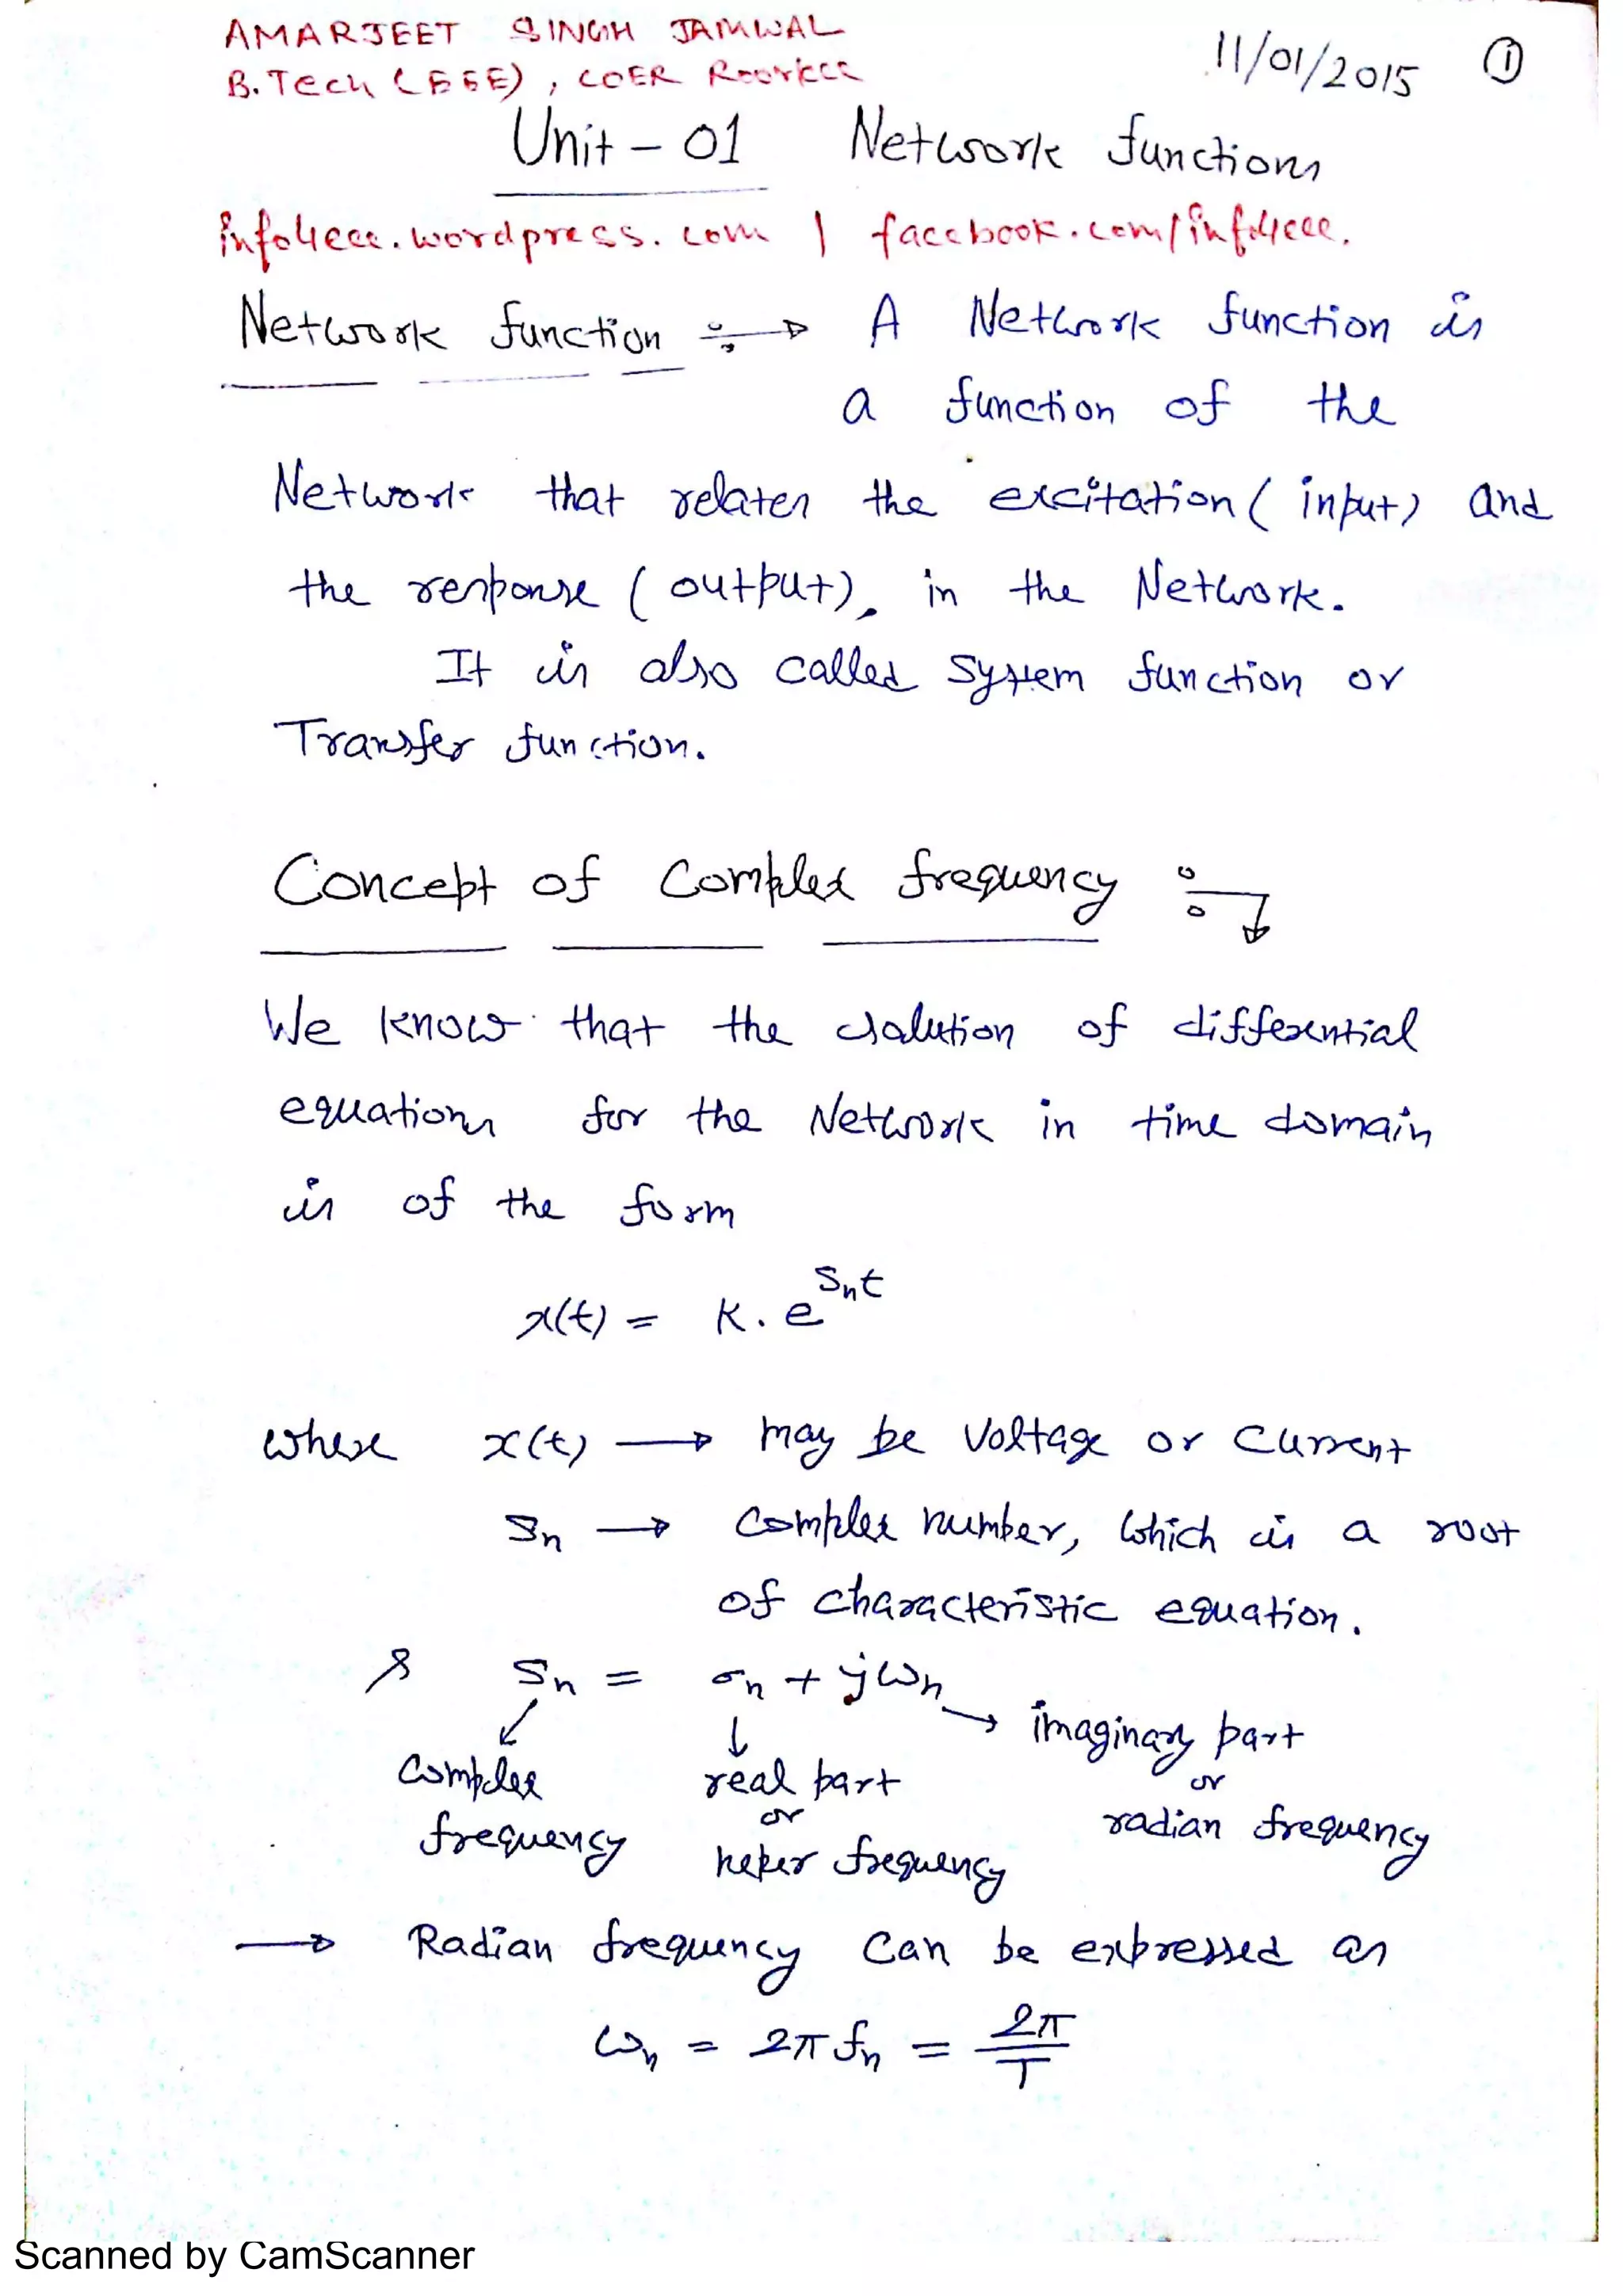 AMARJEET SINGH JAMWAL
B.Tech (EEE), COER Roorkee
11/01/2015 ①
Unit - 01 Network functions
info4eee.wordpress.com | facebook.com/info4eee.
Network function ÷→ A Network function is
a function of the
Network that relates the excitation (input) and
the response (output), in the Network.
It is also called System function or
Transfer function.
Concept of Complex frequency ÷↴
We know that the solution of differential
equations for the Network in time domain
is of the form
x(t) = K. e^{Snt}
where x(t) → may be Voltage or Current
Sn → Complex number, which is a root
of characteristic equation.
& Sn = σn + jωn → imaginary part
or
radian frequency
↙ Complex
frequency
↓ real part
or
neper frequency
→ Radian frequency can be expressed as
ωn = 2π fn = 2π/T
Scanned by CamScanner